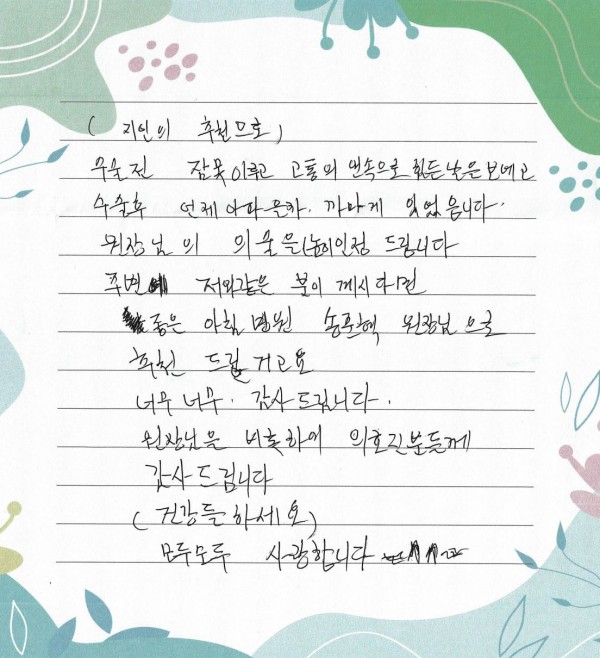 ( 지인의 추천으로)
수술전 잠못이루고 고통의 연속으로 힘든날은 보내고
수술후 언제 아파든가. 까마게 잊었읍니다.
원장님의 의술을 높이인정 드립니다
주변에 저와같은 분이 계시다면
좋은 아침병원 송준혁 원장님으로
추천 드릴거고요
너무너무. 감사드립니다.
원장님을 비롯하여 의료진분들께
감사드립니다
(건강들하세요)
모두모두 사랑합니다